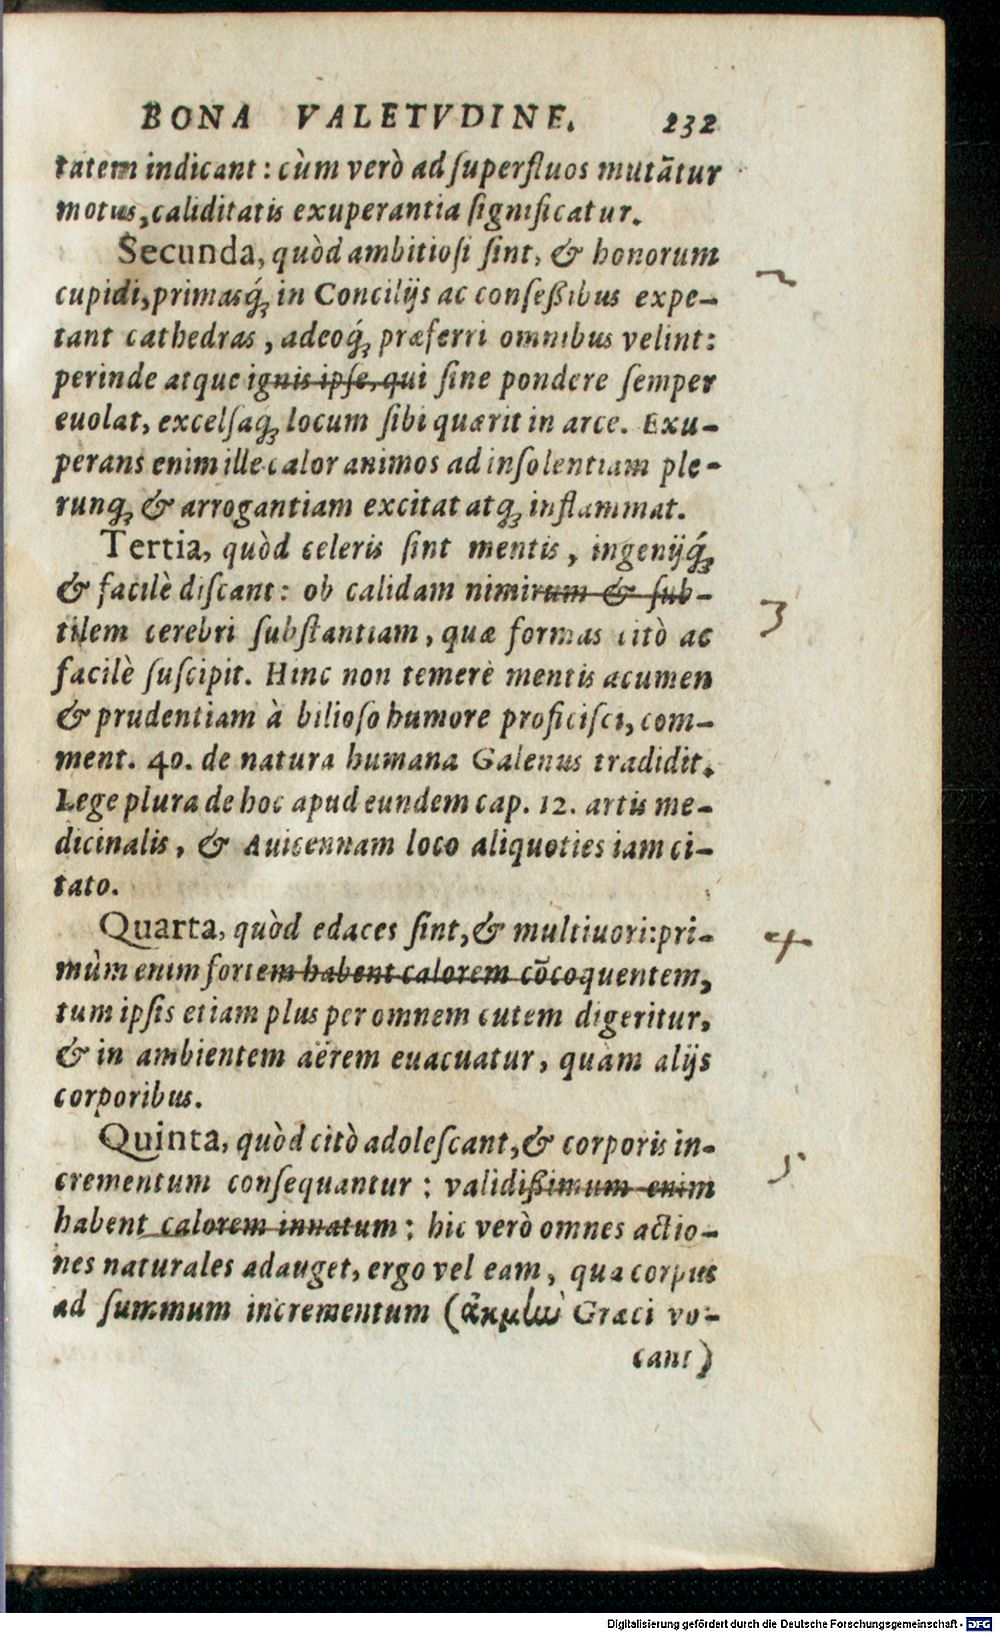 BONA VALETVDINE. 232
tatem indicant: cùm verò ad ſuperfluos mutãtur
motus, caliditatis exuperantia ſignificatur.
Secunda, quòd ambitioſi ſint, & honorum
cupidi, primasq́ꝫ in Concilijs ac conſeßibus expe-
tant cathedras, adeoq́ꝫ præferri omnibus velint:
perinde atque ignis ipſe, qui ſine pondere ſemper
euolat, excelſaqꝫ locum ſibi quærit in arce. Exu-
perans enim ille calor animos ad inſolentiam ple-
runqꝫ & arrogantiam excitat atqꝫ inflammat.
Tertia, quòd celeris ſint mentis, ingenijq́ꝫ
& facilè diſcant: ob calidam nimirum & ſub-
tilem cerebri ſubſtantiam, quæ formas citò ac
facilè ſuſcipit. Hinc non temerè mentis acumen
& prudentiam à bilioſo humore proficiſci, com-
ment. 40. de natura humana Galenus tradidit.
Lege plura de hoc apud eundem cap. 12. artis me-
dicinalis, & Auicennam loco aliquoties iam ci-
tato.
Quarta, quòd edaces ſint, & multiuori: pri-
mùm enim fortem habent calorem cõcoquentem,
tum ipſis etiam plus per omnem cutem digeritur,
& in ambientem aërem euacuatur, quàm alijs
corporibus.
Quinta, quòd citò adoleſcant, & corporis in-
crementum conſequantur: validißimum enim
habent calorem innatum: hic verò omnes actio-
nes naturales adauget, ergo vel eam, qua corpus
ad ſummum incrementum (ἀκμὴν Græci vo-
cant)
2
3
4
5
Digitalisierung gefördert durch die Deutsche Forschungsgemeinschaft - DFG